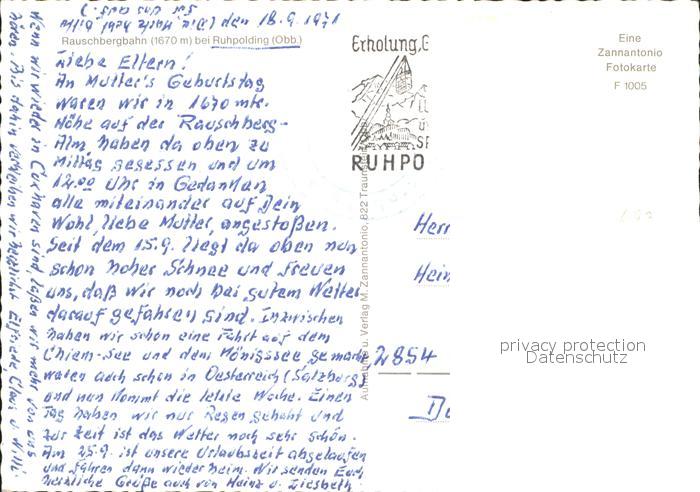 den 18.9.1971
Rauschbergbahn (1670 m) bei Ruhpolding (Obb.)
Liebe Eltern!
An Mutter's Geburtstag
waren wir in 1670 mtr.
Höhe auf der Rauschberg-
Alm, haben da oben zu
Mittag gegessen und um
12.00 Uhr in Gedanken
alle miteinander auf Dein
Wohl, liebe Mutter, angestoßen.
Seit dem 15.9. liegt da oben nun
schon hoher Schnee und freuen
uns, daß wir noch bei gutem Wetter
darauf gefahren sind. Inzwischen
haben wir schon eine Fahrt auf dem
Chiem-See und dem Königssee gemacht
waren auch schon in Oesterreich (Salzburg)
und nun kommt die letzte Woche. Einen
Tag haben wir nur Regen gehabt und
zur Zeit ist das Wetter noch sehr schön.
Am 25.9. ist unsere Urlaubszeit abgelaufen
und fahren dann wieder heim. Wir senden Euch
herzliche Grüße auch von Heinz u. Liesbeth
Wenn wir wieder in Cuxhaven sind, laßen wir mehr von uns
hören. Bis dahin verbleiben wir herzlichst Elfriede, u. Willi
Erholung,
RUHPO
Aufnahme u. Verlag M. Zannantonio, 822 Traun
Eine
Zannantonio
Fotokarte
F 1005
Herr
Hein
2854
privacy protection
Datenschutz